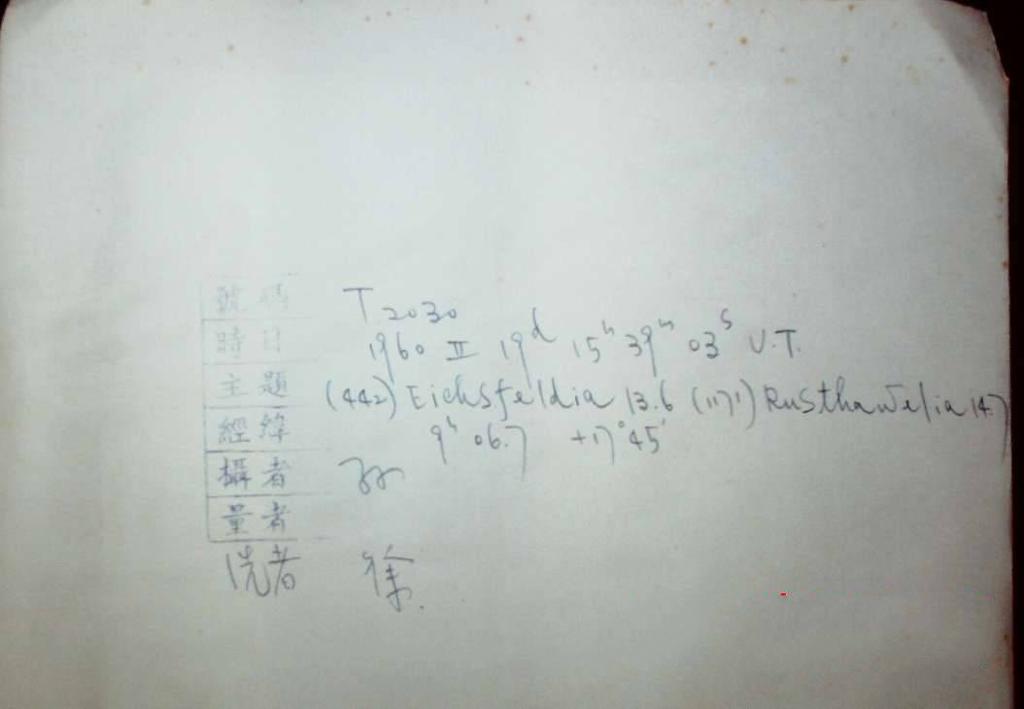 號碼 T 2030
時日 1960 II 19d 15h 39m 03s U.T.
主題 (442) Eichsfeldia 13.6 (1171) Rusthawelia 14.7
經緯 9h 06.7 +17°45'
攝者
量者
洗者 徐.